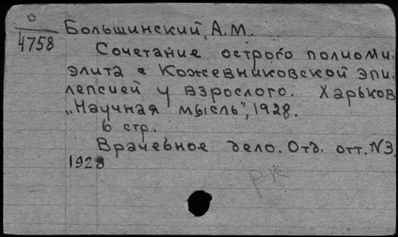 0
4758
Большинский, А.М.
Сочетание острого полиоми-
элита с Кожевниковской эпи-
лепсией у взрослого. Харьков
„Научная мысль", 1928.
6 стр.
Врачебное дело. Отд. отт. N3,
1928
РК